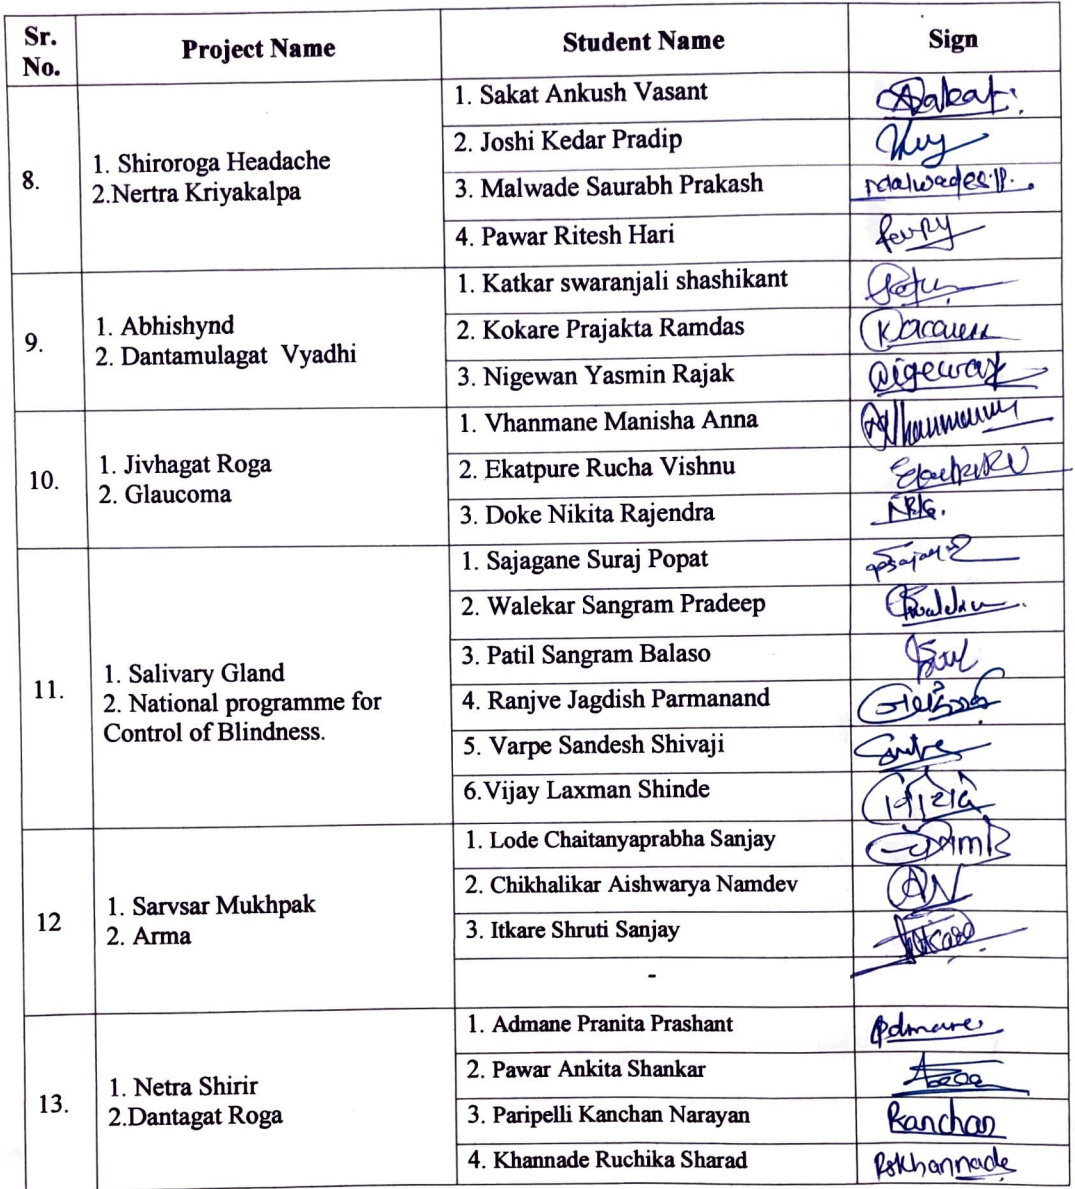 Sr. No. Project Name Student Name Sign
8. 1. Shiroroga Headache
2.Nertra Kriyakalpa
1. Sakat Ankush Vasant
2. Joshi Kedar Pradip
3. Malwade Saurabh Prakash Malwade S.P.
4. Pawar Ritesh Hari
9. 1. Abhishynd
2. Dantamulagat Vyadhi
1. Katkar swaranjali shashikant
2. Kokare Prajakta Ramdas
3. Nigewan Yasmin Rajak
10. 1. Jivhagat Roga
2. Glaucoma
1. Vhanmane Manisha Anna
2. Ekatpure Rucha Vishnu
3. Doke Nikita Rajendra
11. 1. Salivary Gland
2. National programme for
Control of Blindness.
1. Sajagane Suraj Popat
2. Walekar Sangram Pradeep
3. Patil Sangram Balaso
4. Ranjve Jagdish Parmanand
5. Varpe Sandesh Shivaji
6.Vijay Laxman Shinde
12 1. Sarvsar Mukhpak
2. Arma
1. Lode Chaitanyaprabha Sanjay
2. Chikhalikar Aishwarya Namdev AN
3. Itkare Shruti Sanjay
-
13. 1. Netra Shirir
2.Dantagat Roga
1. Admane Pranita Prashant Admane
2. Pawar Ankita Shankar
3. Paripelli Kanchan Narayan Kanchan
4. Khannade Ruchika Sharad RSKhannade